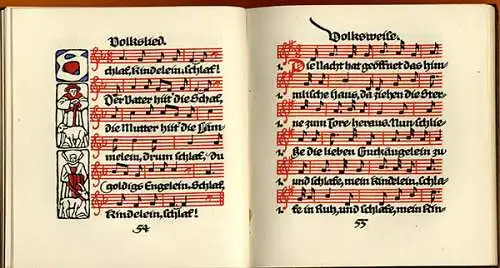 Volkslied.
Schlaf, Kindelein, schlaf!
Der Vater hüt die Schaf,
die Mutter hüt die Läm=
melein, drum schlaf, du
goldigs Engelein. Schlaf,
Kindelein, schlaf!
54
Volksweise.
1. Die Nacht hat geöffnet das him=
1. mlische Haus, da ziehen die Ster=
1. ne zum Tore heraus. Nun schlie=
1. ße die lieben Guckäugelein zu
1. und schlafe, mein Kindelein, schla=
1. fe in Ruh, und schlafe, mein Kin=
55